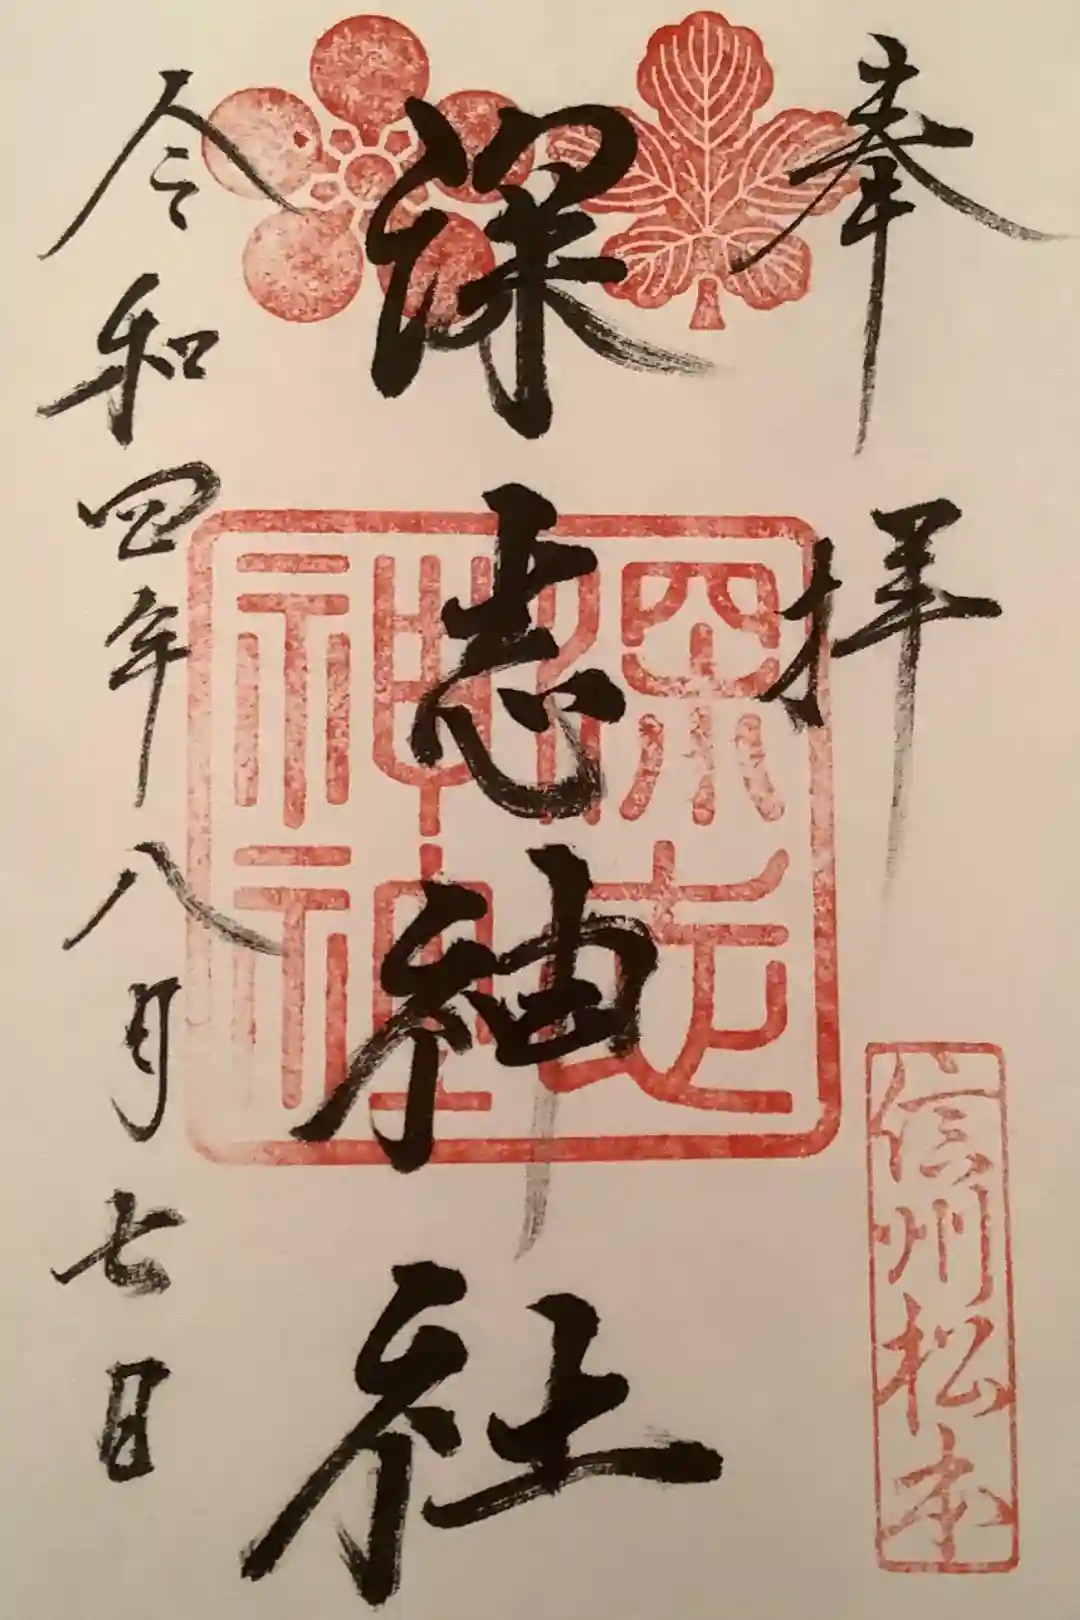 奉拝
信州松本
深志神社
深志
神社
令和四年八月七日